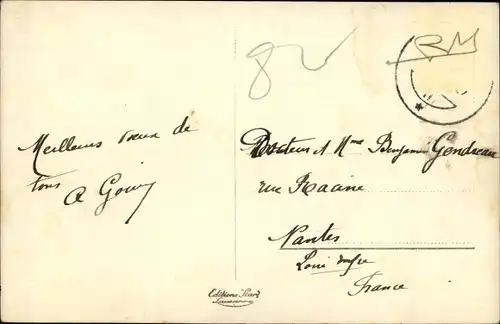 82
RM
Meilleurs vœux de
tous
Docteur et Mme Benjamin Gendreau
rue Racine
Nantes
Loire Infre
France
Editions
Lausanne